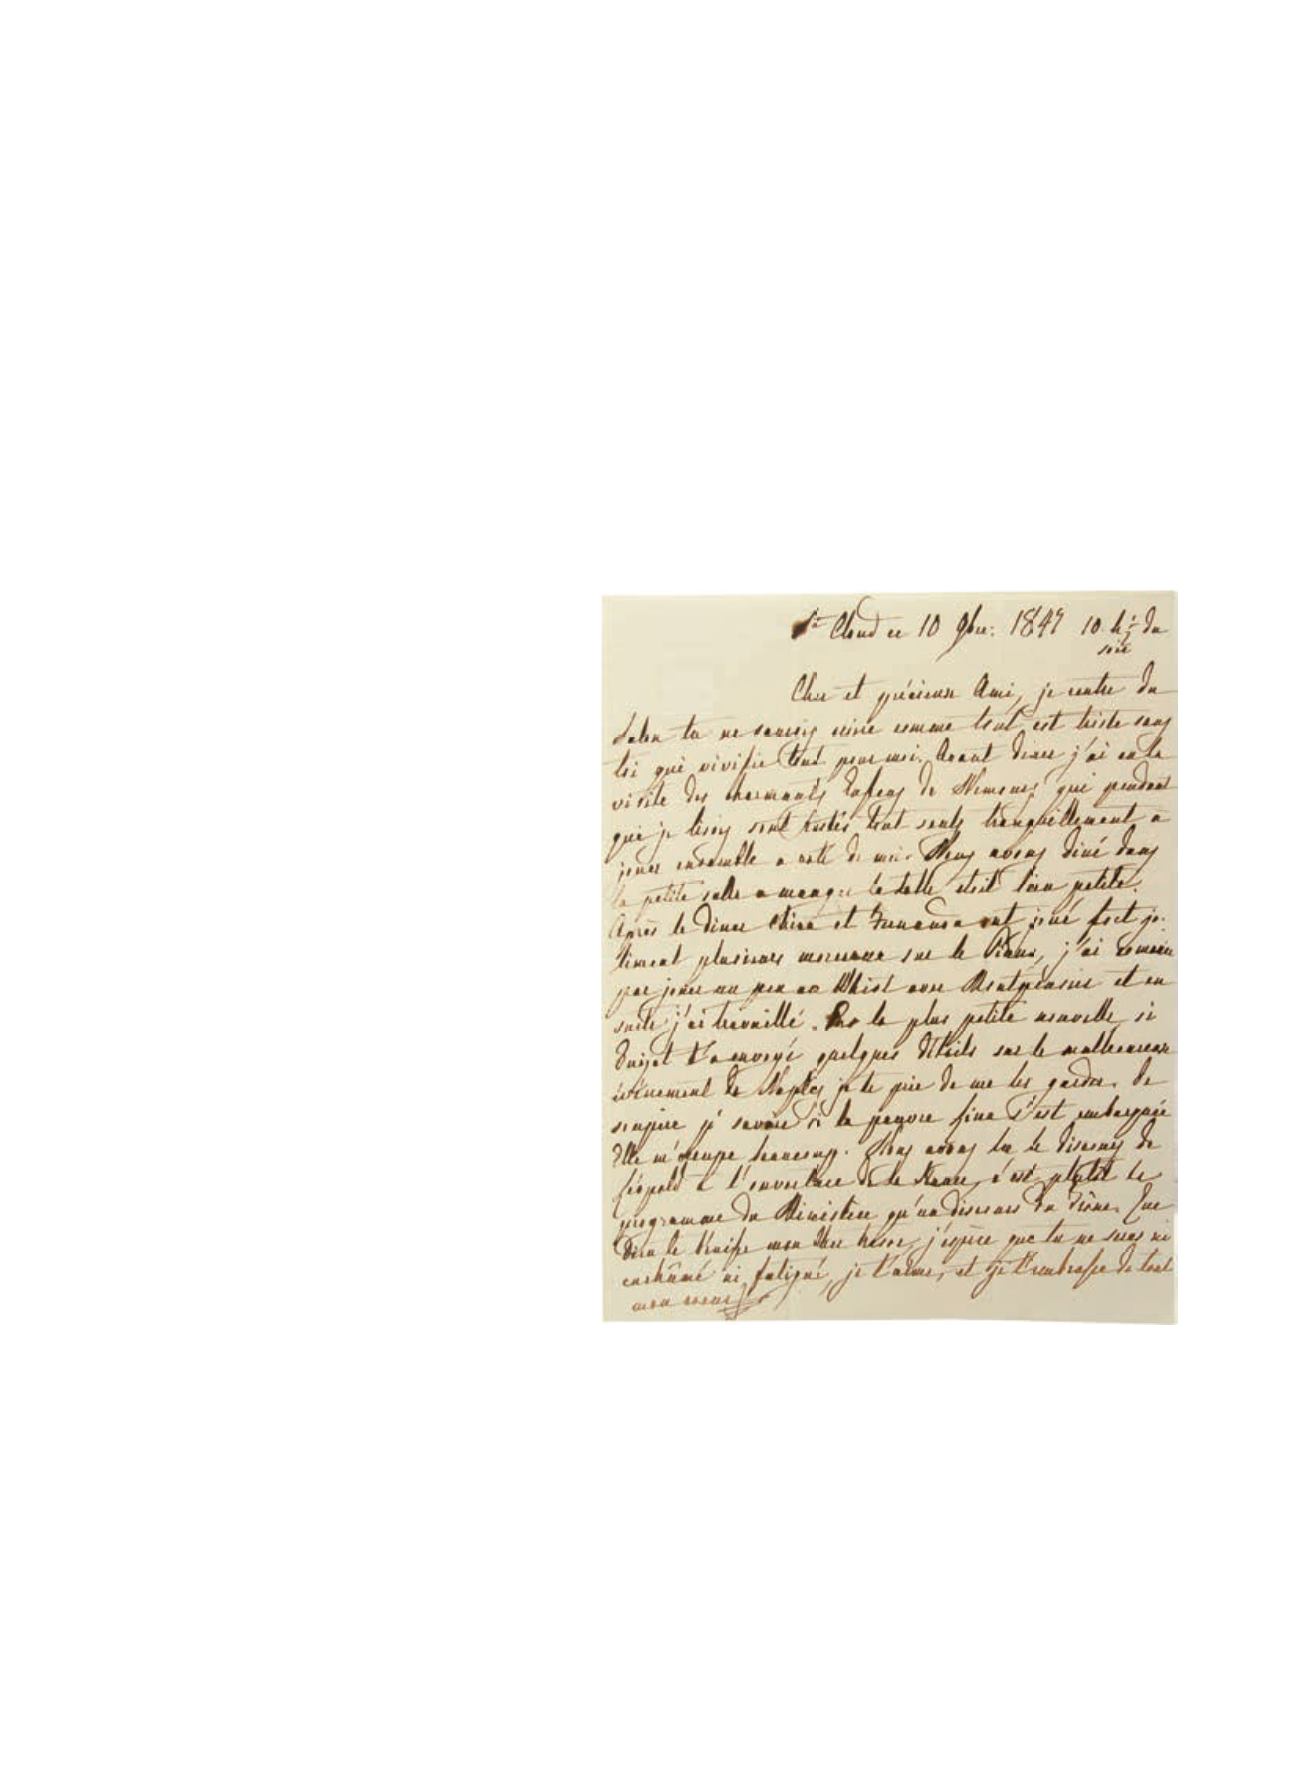 St Cloud ce 10 9bre: 1847 10 h ½ du
soir
Cher et précieux Ami, je rentre du
Salon tu ne saurois croire comme tout est triste sans
toi qui vivifie tout pour moi. Avant diner j'ai eu la
visite des charmants Enfens de Nemours, qui pendant
que je lisois sont restés tout seuls tranquillement a
jouer ensemble a coté de moi. Nous avons diné dans
la petite salle a manger la table etoit bien petite.
Après le diner Chica et Fernanda ont joué fort jo-
liment plusieurs morceaux sur le Piano, j'ai
par jouer un peu au Whist avec Montpensier et en
suite j'ai travaillé. Pas la plus petite nouvelle, si
Guizot t'a envoyé quelques détails sur le malheureux
evènement de Naples je te prie de me les garder. Je
soupire p^r savoir si la pauvre Lina s'est embarquée
Elle m'occupe beaucoup. Nous avons lu le discours de
Léopold a l'ouverture de la c'est plutôt le
programme du Ministère qu'un discours du Trône. Que
Dieu te benisse mon cher tresor, j'espère que tu ne seras ni
enrhûmé ni fatigué, je t'aime, et je t'embrasse de tout
mon coeur